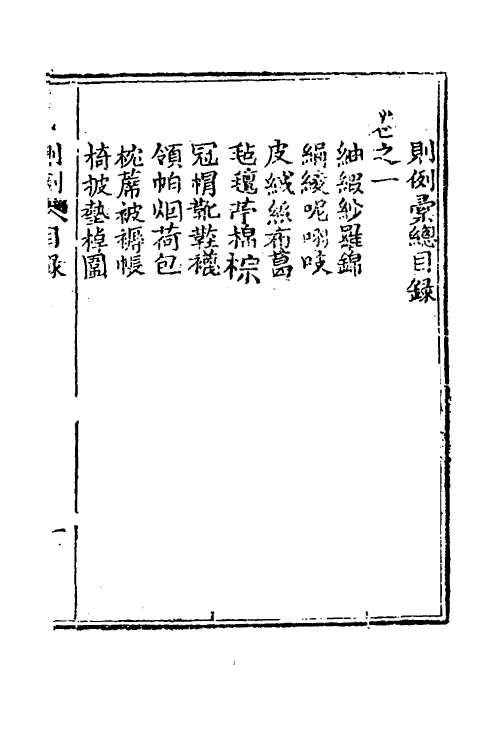 則例彙總目録
卷之一
紬緞紗羅錦
絹綾呢嗶吱
皮絨絲布葛
毡氊苧棉棕
冠帽靴鞋襪
領帕烟荷包
枕蓆被褥帳
椅披墊棹圍
則例 目録
一